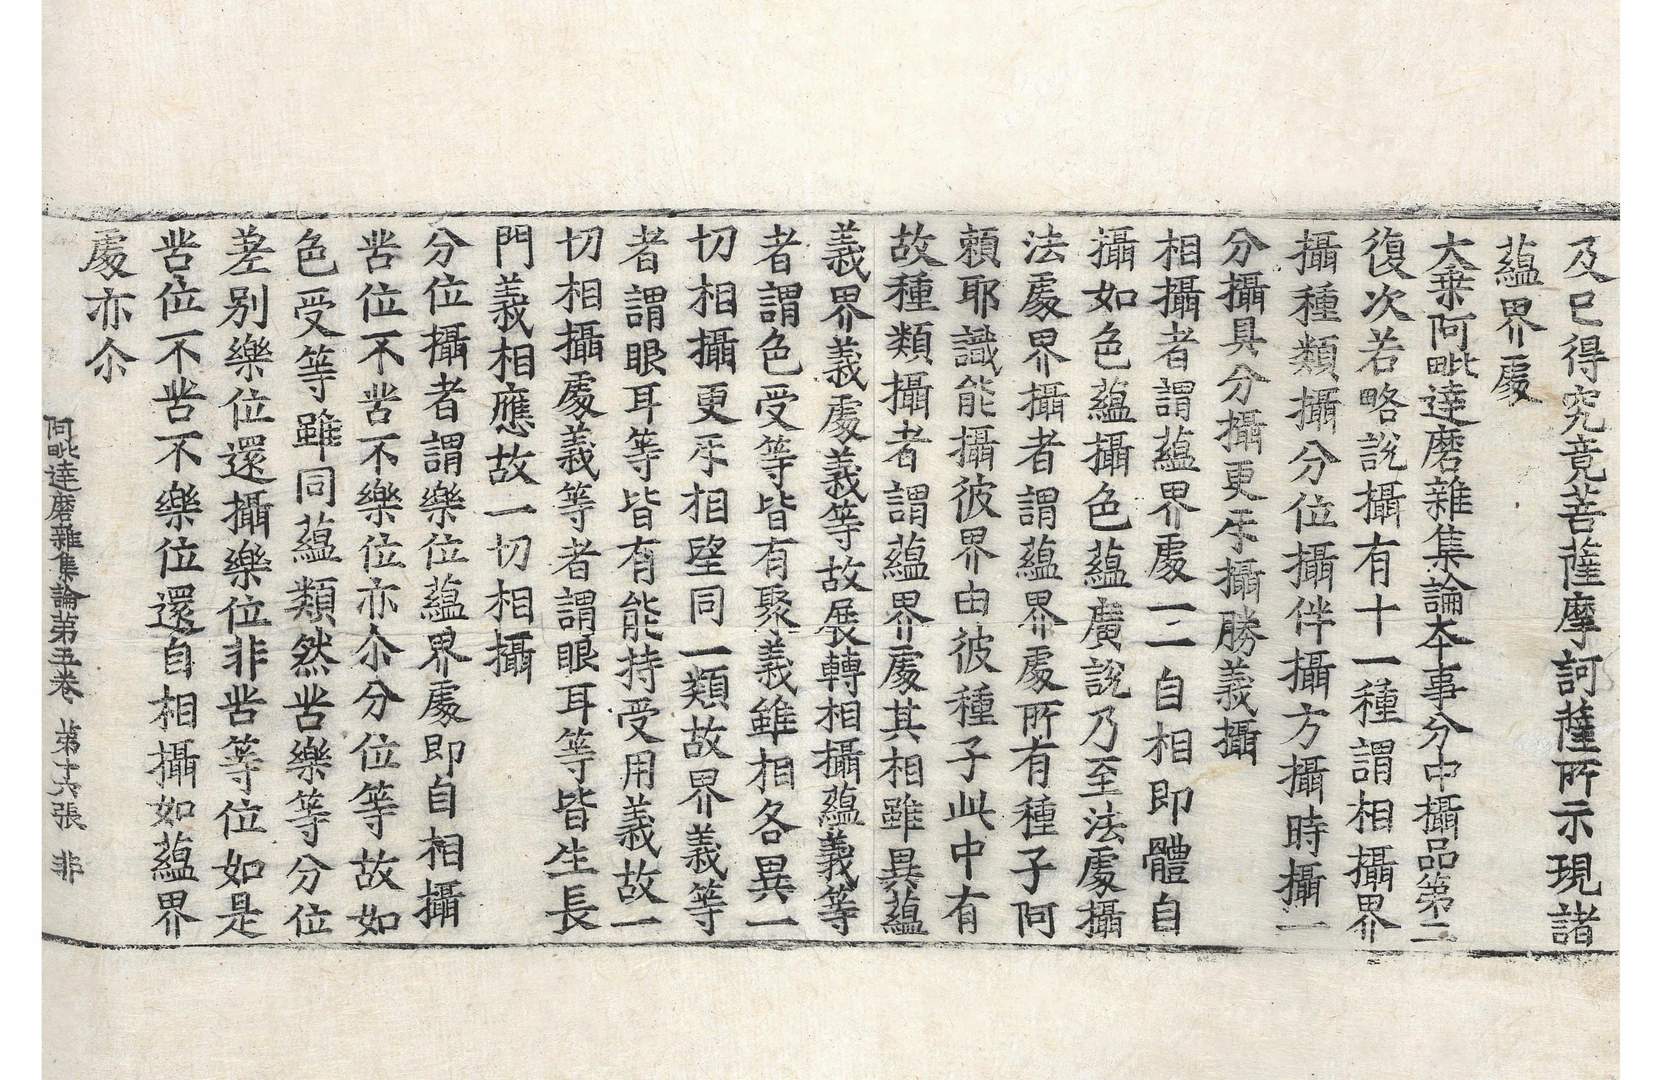 及已得究竟菩薩摩訶薩所示現諸
蘊界處
大乗阿毗達磨雜集論本事分中攝品第二
復次若略說攝有十一種謂相攝界
攝種類攝分位攝伴攝方攝時攝一
分攝具分攝更㸦攝勝義攝
相攝者謂蘊界處一一自相即體自
攝如色蘊攝色蘊廣說乃至法處攝
法處界攝者謂蘊界處所有種子阿
頼耶識能攝彼界由彼種子此中有
故種類攝者謂蘊界處其相雖異蘊
義界義處義等故展轉相攝蘊義等
者謂色受等皆有聚義雖相各異一
切相攝更㸦相望同一類故界義等
者謂眼耳等皆有能持受用義故一
切相攝處義等者謂眼耳等皆生長
門義相應故一切相攝
分位攝者謂樂位蘊界處即自相攝
苦位不苦不樂位亦尒分位等故如
色受等雖同蘊類然苦樂等分位
差别樂位還攝樂位非苦等位如是
苦位不苦不樂位還自相攝如蘊界
處亦尒
阿毗達磨雜集論第五卷 第十六張 非